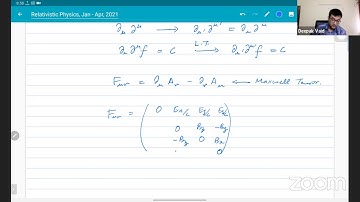 4:58
Relativistic Physics, Jan - Apr, 2021
Deepak Vaid
∂μ ∂^μ ⟶ ∂μ' ∂^μ' = ∂μ ∂^μ
∂μ ∂^μ f = c ⟶ L.T. ∂μ' ∂^μ' f = c
Fμν = ∂μ Aν − ∂ν Aμ ⟵ Maxwell Tensor
Fμν = ( 0 Ex/c Ey/c Ez/c
0 Bz −By
−Bz 0 Bx
0 )
zoom